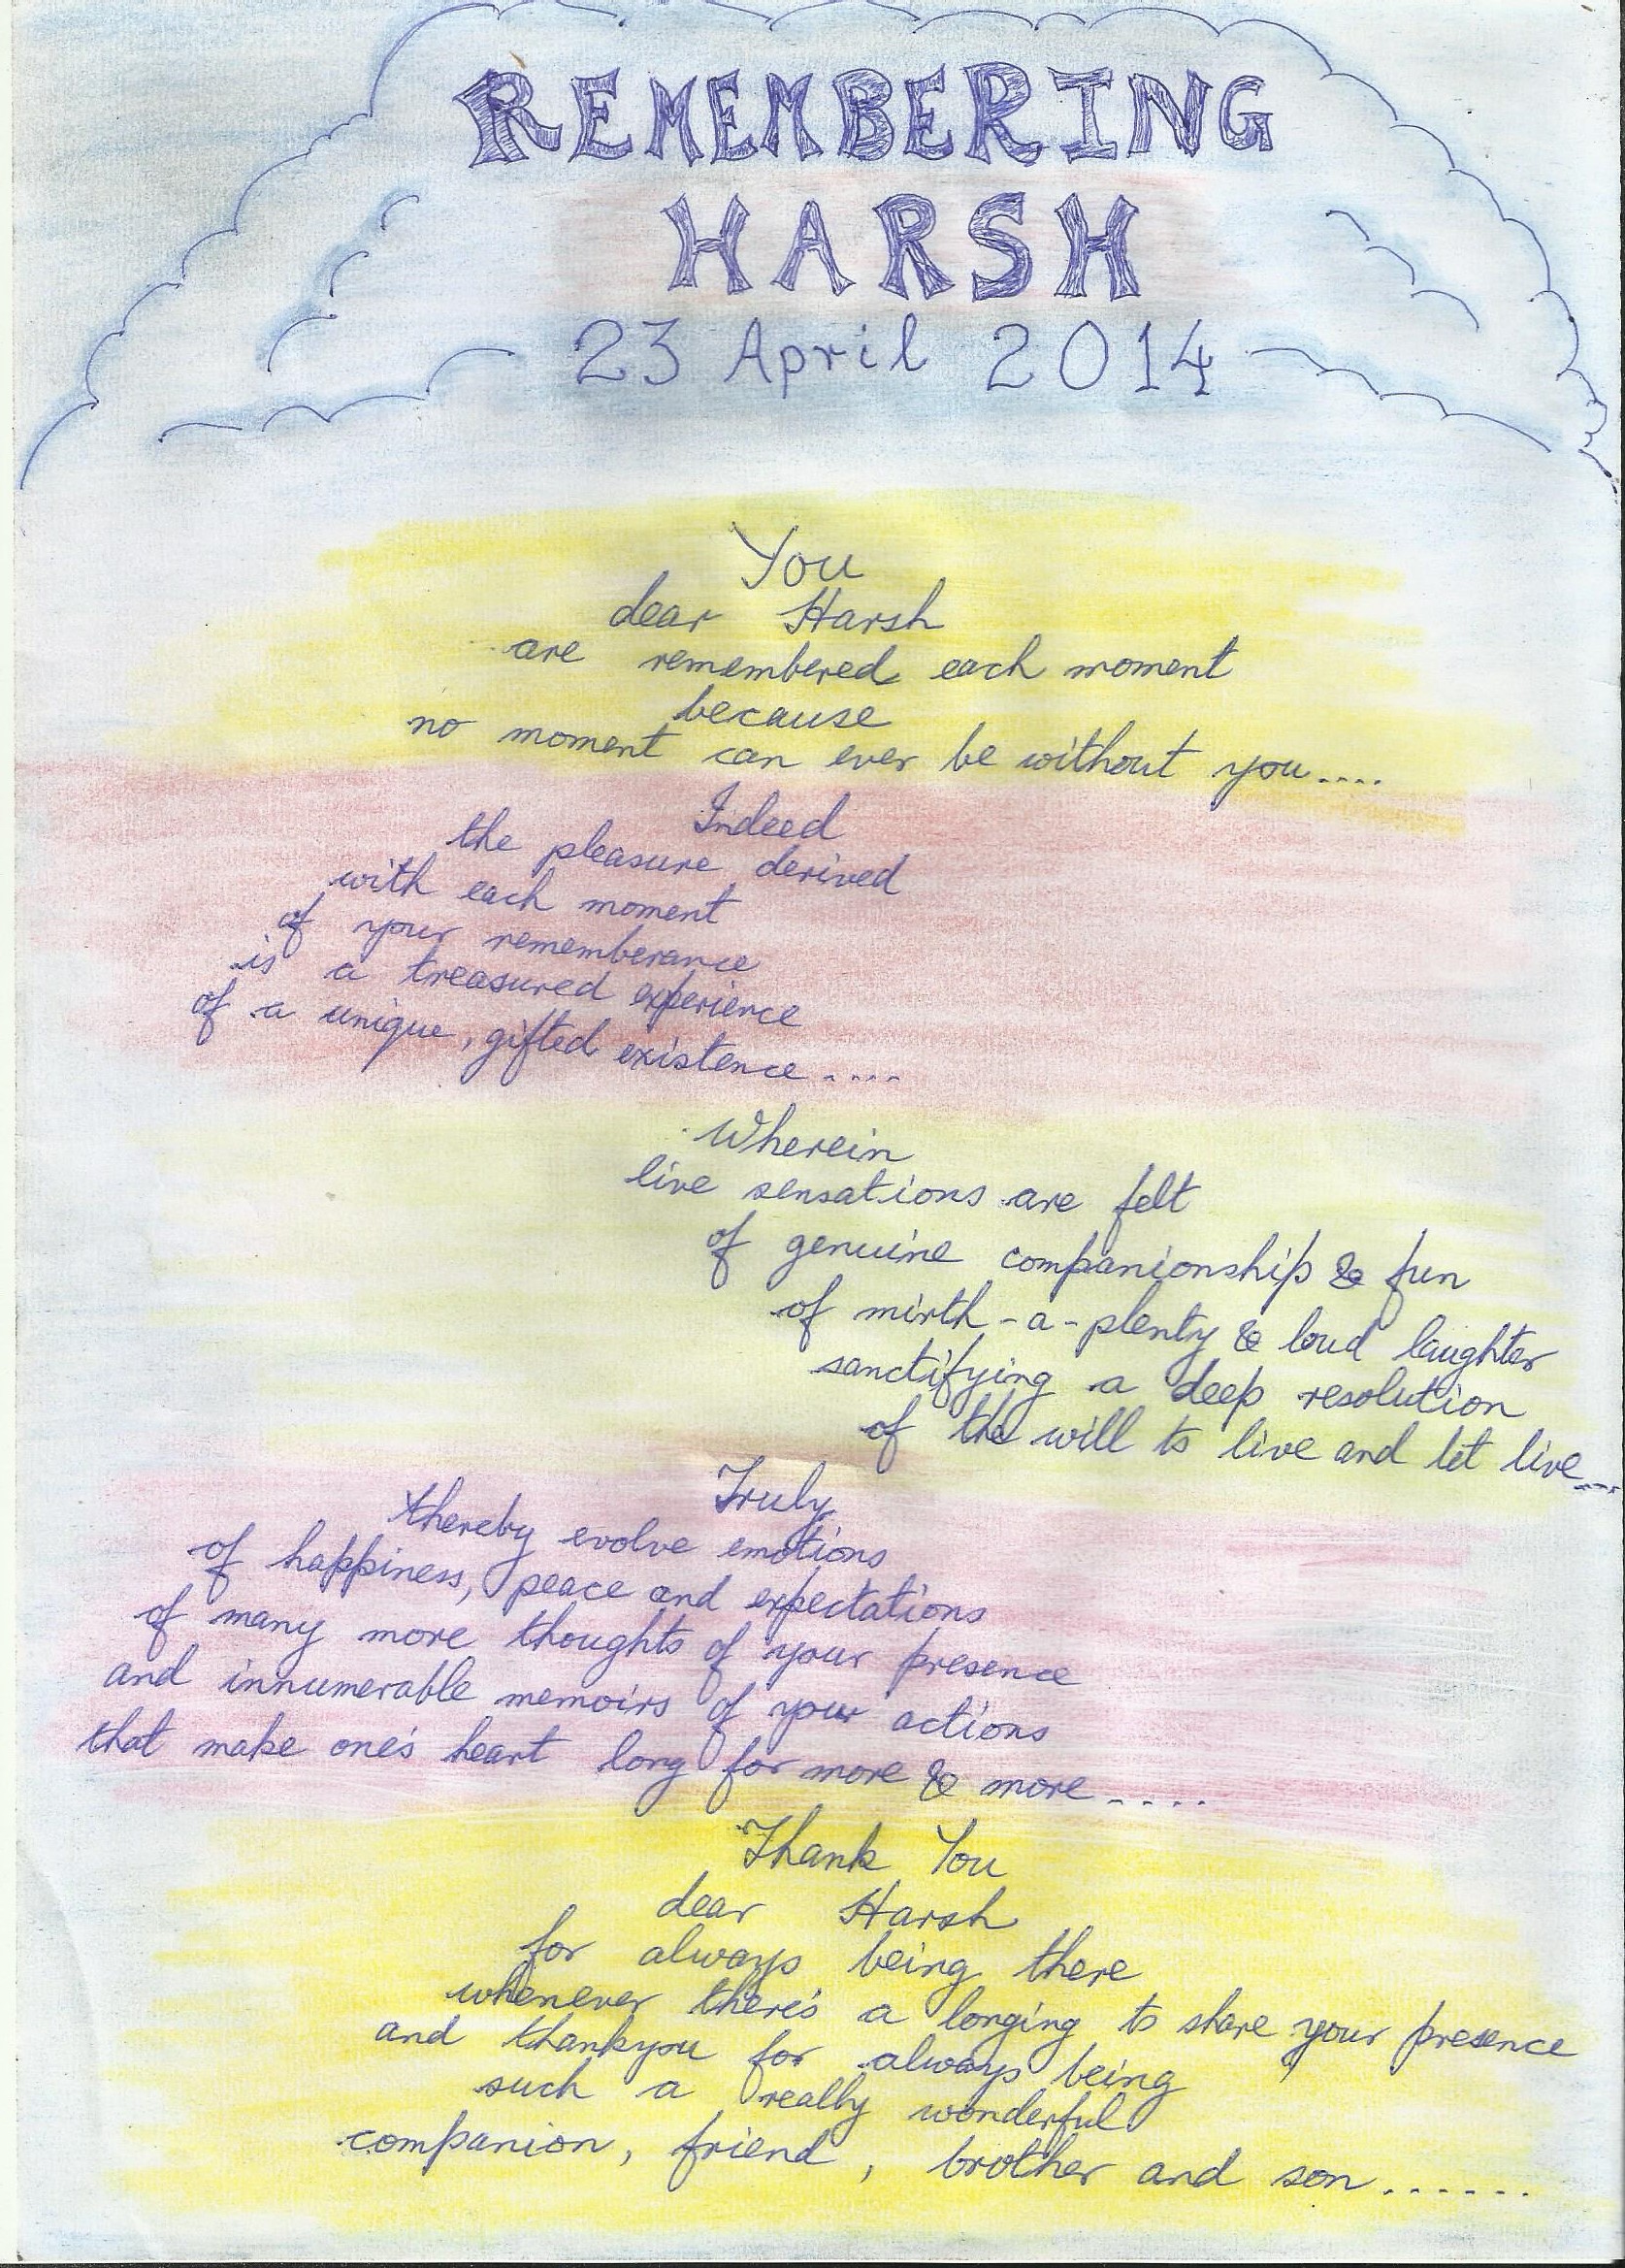 REMEMBERING
HARSH
23 April 2014
You
dear Harsh
are remembered each moment
because
no moment can ever be without you....
Indeed
the pleasure derived
with each moment
of your rememberance
is a treasured experience
of a unique, gifted existence....
Wherein
live sensations are felt
of genuine companionship & fun
of mirth-a-plenty & loud laughter
sanctifying a deep resolution
of the will to live and let live....
Truly
thereby evolve emotions
of happiness, peace and expectations
of many more thoughts of your presence
and innumerable memoirs of your actions
that make one's heart long for more & more.....
Thank You
dear Harsh
for always being there
whenever there's a longing to share your presence
and thankyou for always being
such a really wonderful
companion, friend, brother and son......